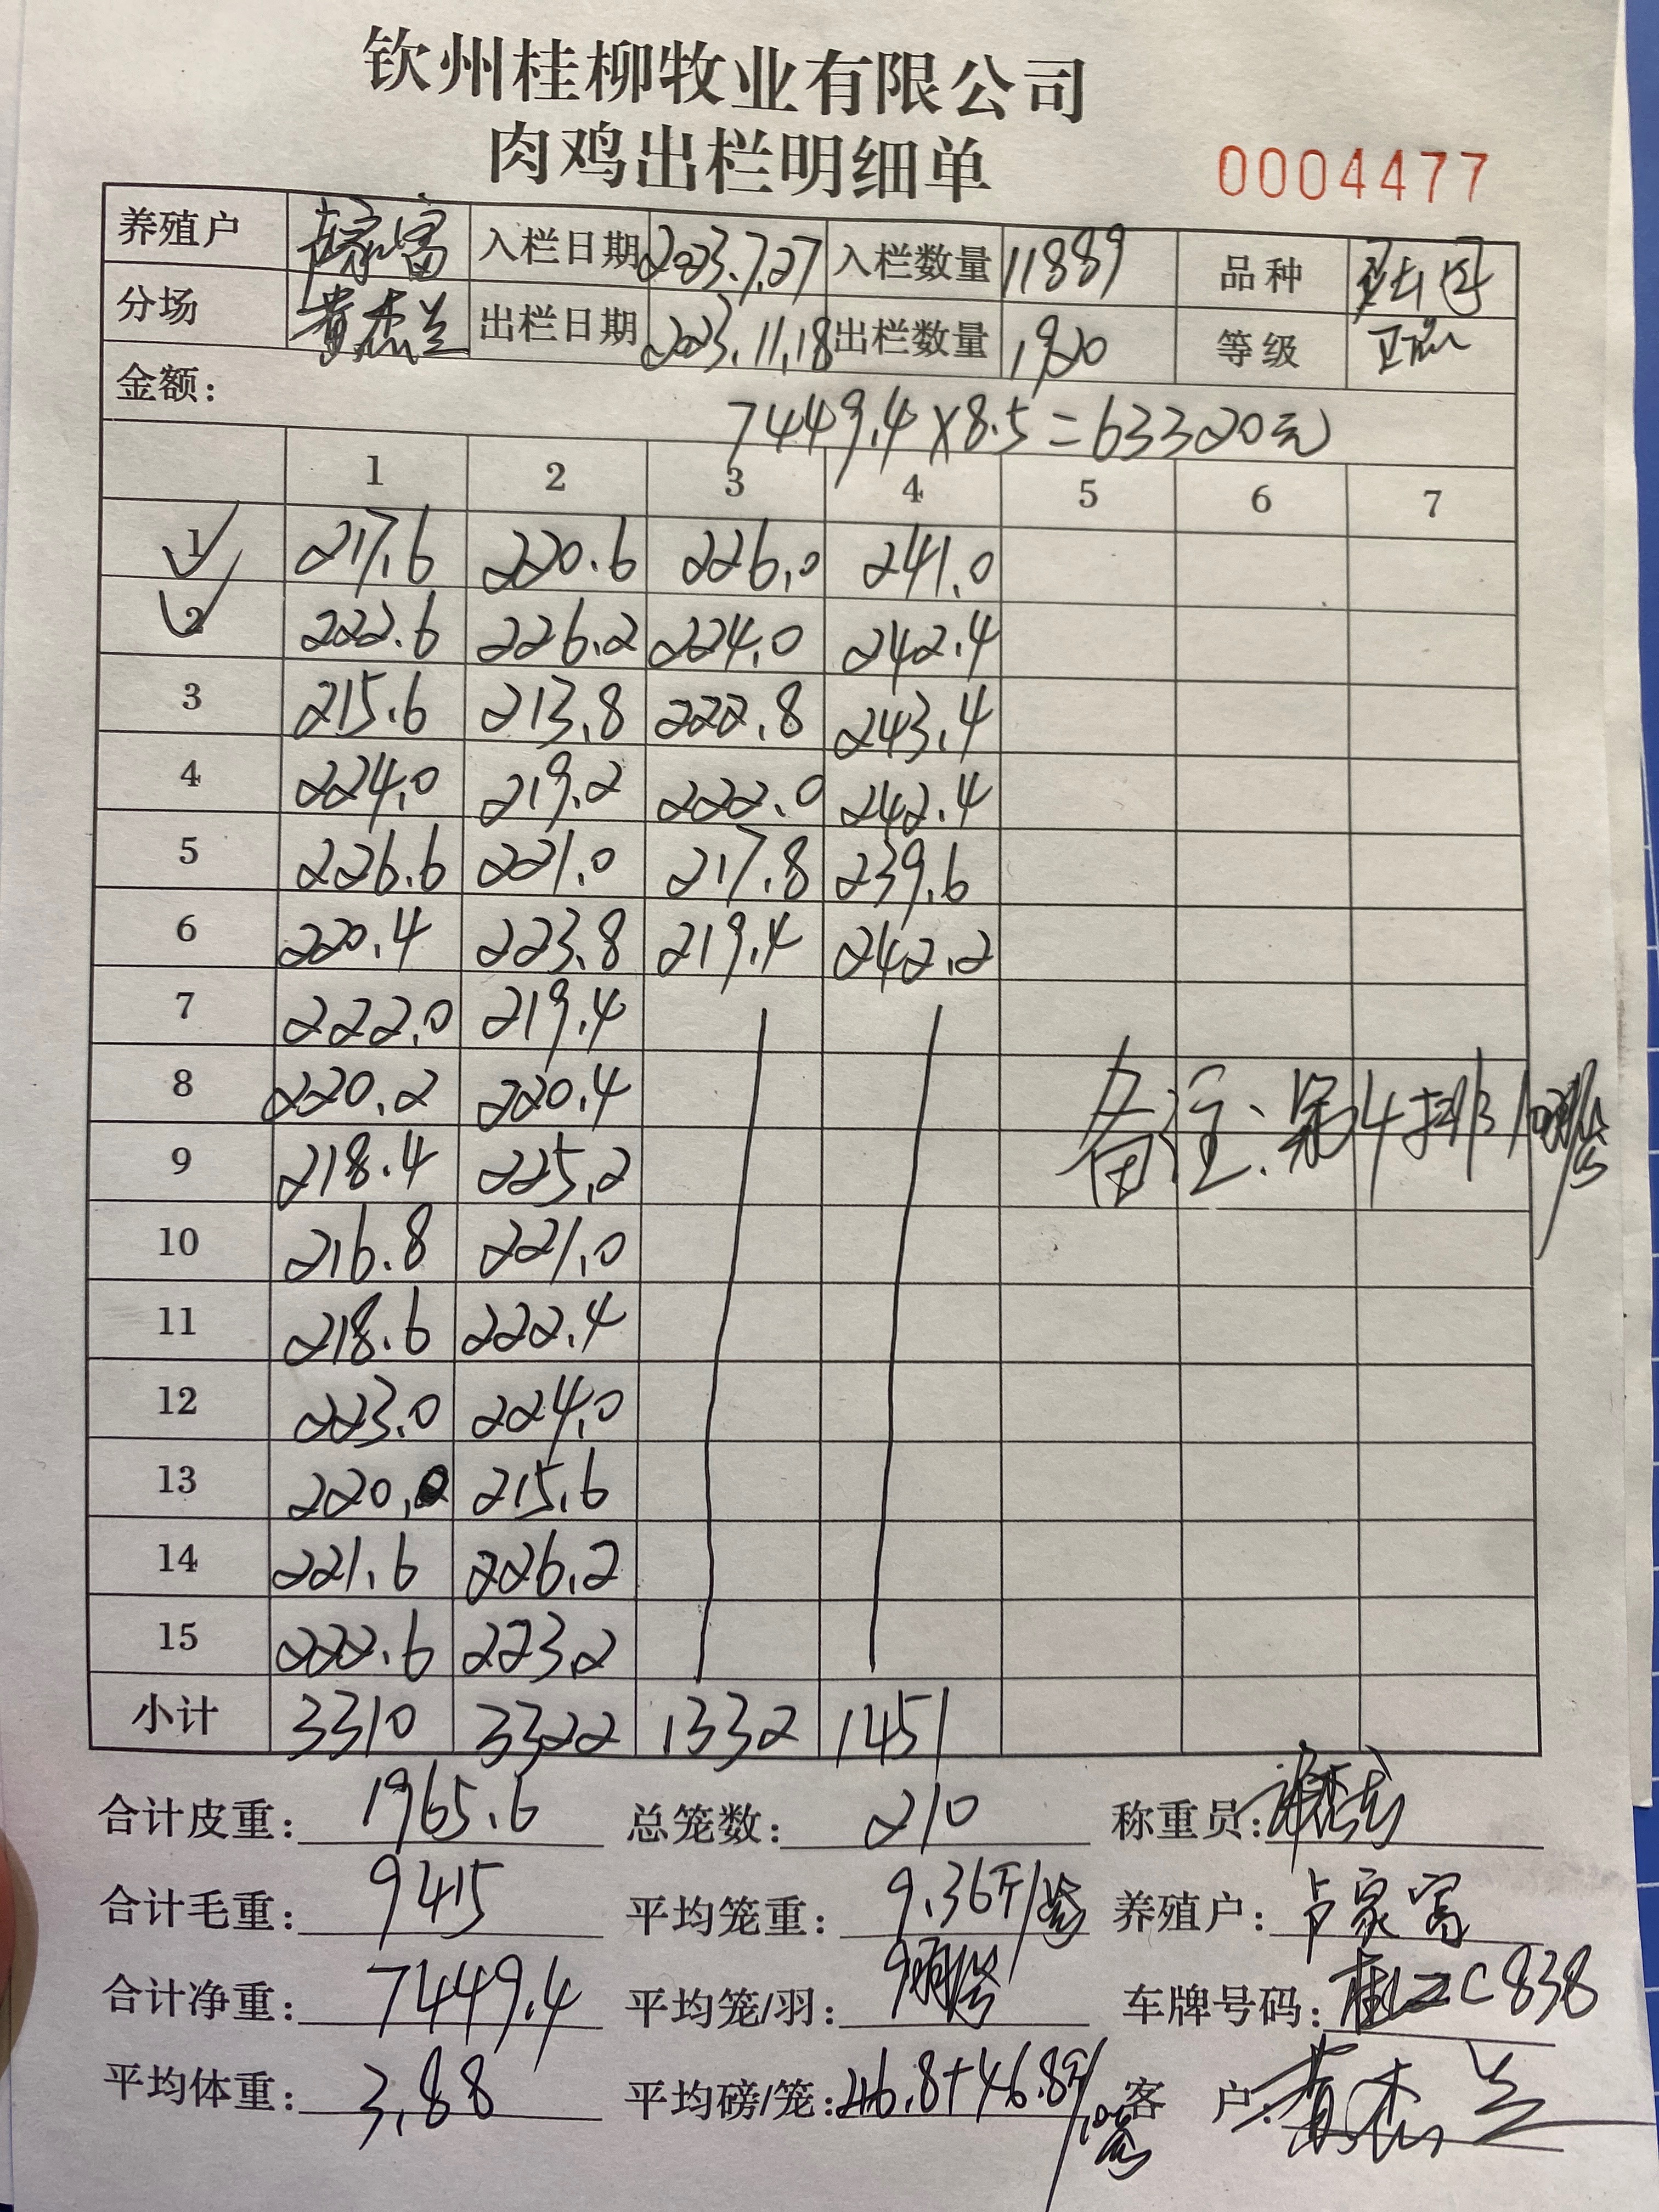 钦州桂柳牧业有限公司
肉鸡出栏明细单
0004477
养殖户 卢家富 入栏日期 2023.7.27 入栏数量 11889 品种
分场 黄杰兰 出栏日期 2023.11.18 出栏数量 1920 等级
金额: 7449.4×8.5=63320元
1 2 3 4 5 6 7
1 217.6 220.6 226.0 241.0
2 222.6 226.2 224.0 242.4
3 215.6 213.8 222.8 243.4
4 224.0 219.2 222.0 242.4
5 226.6 221.0 217.8 239.6
6 220.4 223.8 219.4 242.2
7 222.0 219.4
8 220.2 220.4
9 218.4 225.2
备注:第4排10羽/笼
10 216.8 221.0
11 218.6 222.4
12 223.0 224.0
13 220.0 215.6
14 221.6 226.2
15 222.6 223.2
小计 3310 3322 1332 1451
合计皮重: 1965.6 总笼数: 210 称重员:
合计毛重: 9415 平均笼重: 9.36斤/笼 养殖户: 卢家富
合计净重: 7449.4 平均笼/羽: 9羽/笼 车牌号码: C838
平均体重: 3.88 平均磅/笼: 46.8+46.8斤/10笼 客户: 黄杰兰